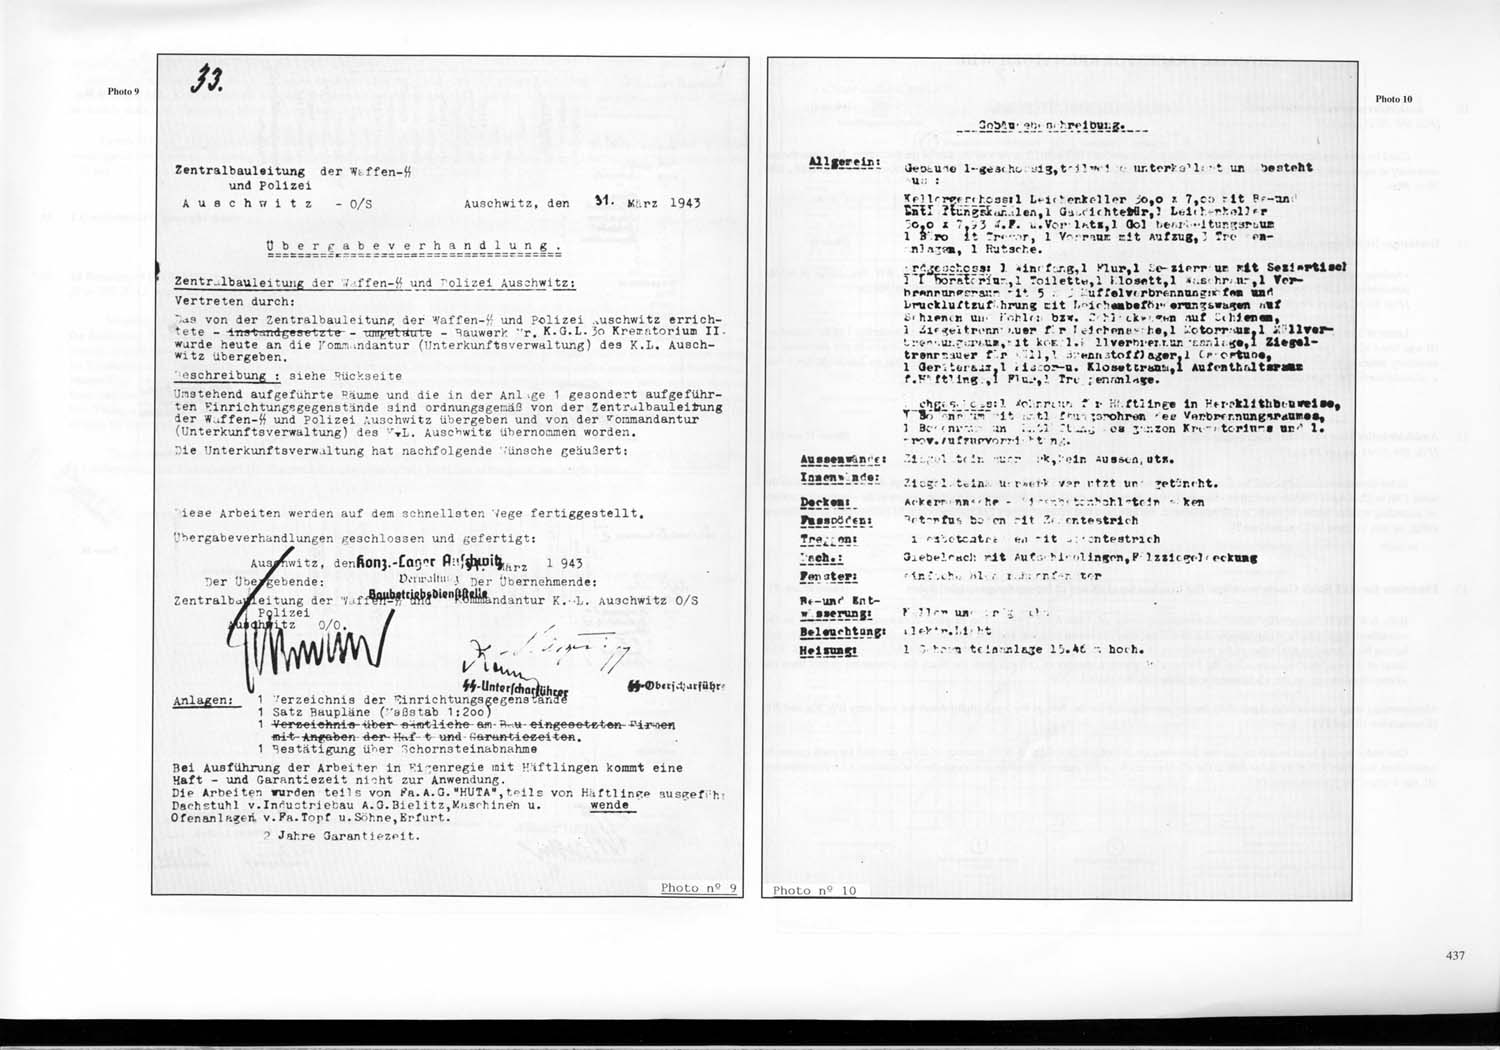 Photo 9
33.
Zentralbauleitung der Waffen-SS
und Polizei
Auschwitz - O/S
Auschwitz, den 31. März 1943
Übergabeverhandlung.
Zentralbauleitung der Waffen-SS und Polizei Auschwitz:
Vertreten durch:
Das von der Zentralbauleitung der Waffen-SS und Polizei Auschwitz errich-
tete - instandgesetzte - umgebaute - Bauwerk Nr. K.G.L. 3o Krematorium II.
wurde heute an die Kommandantur (Unterkunftsverwaltung) des K.L. Ausch-
witz übergeben.
Beschreibung : siehe Rückseite
Umstehend aufgeführte Räume und die in der Anlage 1 gesondert aufgeführ-
ten Einrichtungsgegenstände sind ordnungsgemäß von der Zentralbauleitung
der Waffen-SS und Polizei Auschwitz übergeben und von der Kommandantur
(Unterkunftsverwaltung) des K.L. Auschwitz übernommen worden.
Die Unterkunftsverwaltung hat nachfolgende Wünsche geäußert:
Diese Arbeiten werden auf dem schnellsten Wege fertiggestellt.
Übergabeverhandlungen geschlossen und gefertigt:
Auschwitz, den 31. März 1 943
Konz.-Lager Auschwitz
Verwaltung
Baubetriebsdienststelle
Der Übergebende: Der Übernehmende:
Zentralbauleitung der Waffen-SS und Kommandantur K.L. Auschwitz O/S
Polizei
Auschwitz O/O.
SS-Unterscharführer SS-Oberscharführer
Anlagen: 1 Verzeichnis der Einrichtungsgegenstände
1 Satz Baupläne (Maßstab 1:2oo)
1 Verzeichnis über sämtliche am Bau eingesetzten Firmen
mit Angaben der Haft und Garantiezeiten.
1 Bestätigung über Schornsteinabnahme
Bei Ausführung der Arbeiten in Eigenregie mit Häftlingen kommt eine
Haft - und Garantiezeit nicht zur Anwendung.
Die Arbeiten wurden teils von Fa.A.G."HUTA",teils von Häftlinge ausgeführt
Dachstuhl v.Industriebau A.G.Bielitz,Maschinen u. wende
Ofenanlagen v.Fa.Topf u.Söhne,Erfurt.
2 Jahre Garantiezeit.
Photo nº 9
Photo 10
Gebäudebeschreibung.
Allgemein: Gebäude 1-geschossig,teilweise unterkellert und besteht
aus :
Kellergeschoss:1 Leichenkeller 3o,o x 7,oo mit Be-und
Entlüftungskanälen,1 Gasdichtetür,1 Leichenkeller
x 7,93 u.Vorplatz,1 Goldbearbeitungsraum
1 Büro mit Tresor, 1 Vorraum mit Aufzug,3 Treppen-
anlagen, 1 Rutsche.
Erdgeschoss: 1 Windfang,1 Flur,1 Sezierraum mit Seziertisch
1 Laboratorium,1 Toilette,1 Klosett,1 Waschraum,1 Ver-
brennungsraum mit 5 Muffelverbrennungsöfen und
Druckluftzuführung mit Leichenbeförderungswagen auf
Schienen und Kohlen bzw. Schlackwagen auf Schienen,
1 Ziegeltrennmauer für Leichenasche,1 Motorraum,1 Müllver-
brennungsraum,mit kompl. Müllverbrennungsanlage,1 Ziegel-
trennmauer für Müll,1 Brennstofflager,1
1 Geräteraum,1 u. Klosettraum,1 Aufenthaltsraum
f.Häftling.,1 Flur,1 Treppenanlage.
Dachgeschoss:1 Wohnraum für Häftlinge in Heraklithbauweise,
1 Bodenraum mit Entlüftungsrohren des Verbrennungsraumes,
1 Bodenraum Entlüftung des ganzen Krematoriums und 1.
prov.Aufzugvorrichtung.
Aussenwände: Ziegelsteinmauerwerk,kein Aussenputz.
Innenwände: Ziegelsteinmauerwerk verputzt und getüncht.
Decken: Ackermannsche - Eisenbetonhohlsteindecken
Fussböden: Betonfussboden mit Zementestrich
Treppen: mit Zementestrich
Dach.: Giebeldach mit Aufschieblingen,Falzziegeldeckung
Fenster: einfache Blendrahmenfenster
Be-und Ent-
wässerung: Keller und
Beleuchtung: elektr.Licht
Heizung: 1 Schornsteinanlage 15.46 m hoch.
Photo nº 10
437